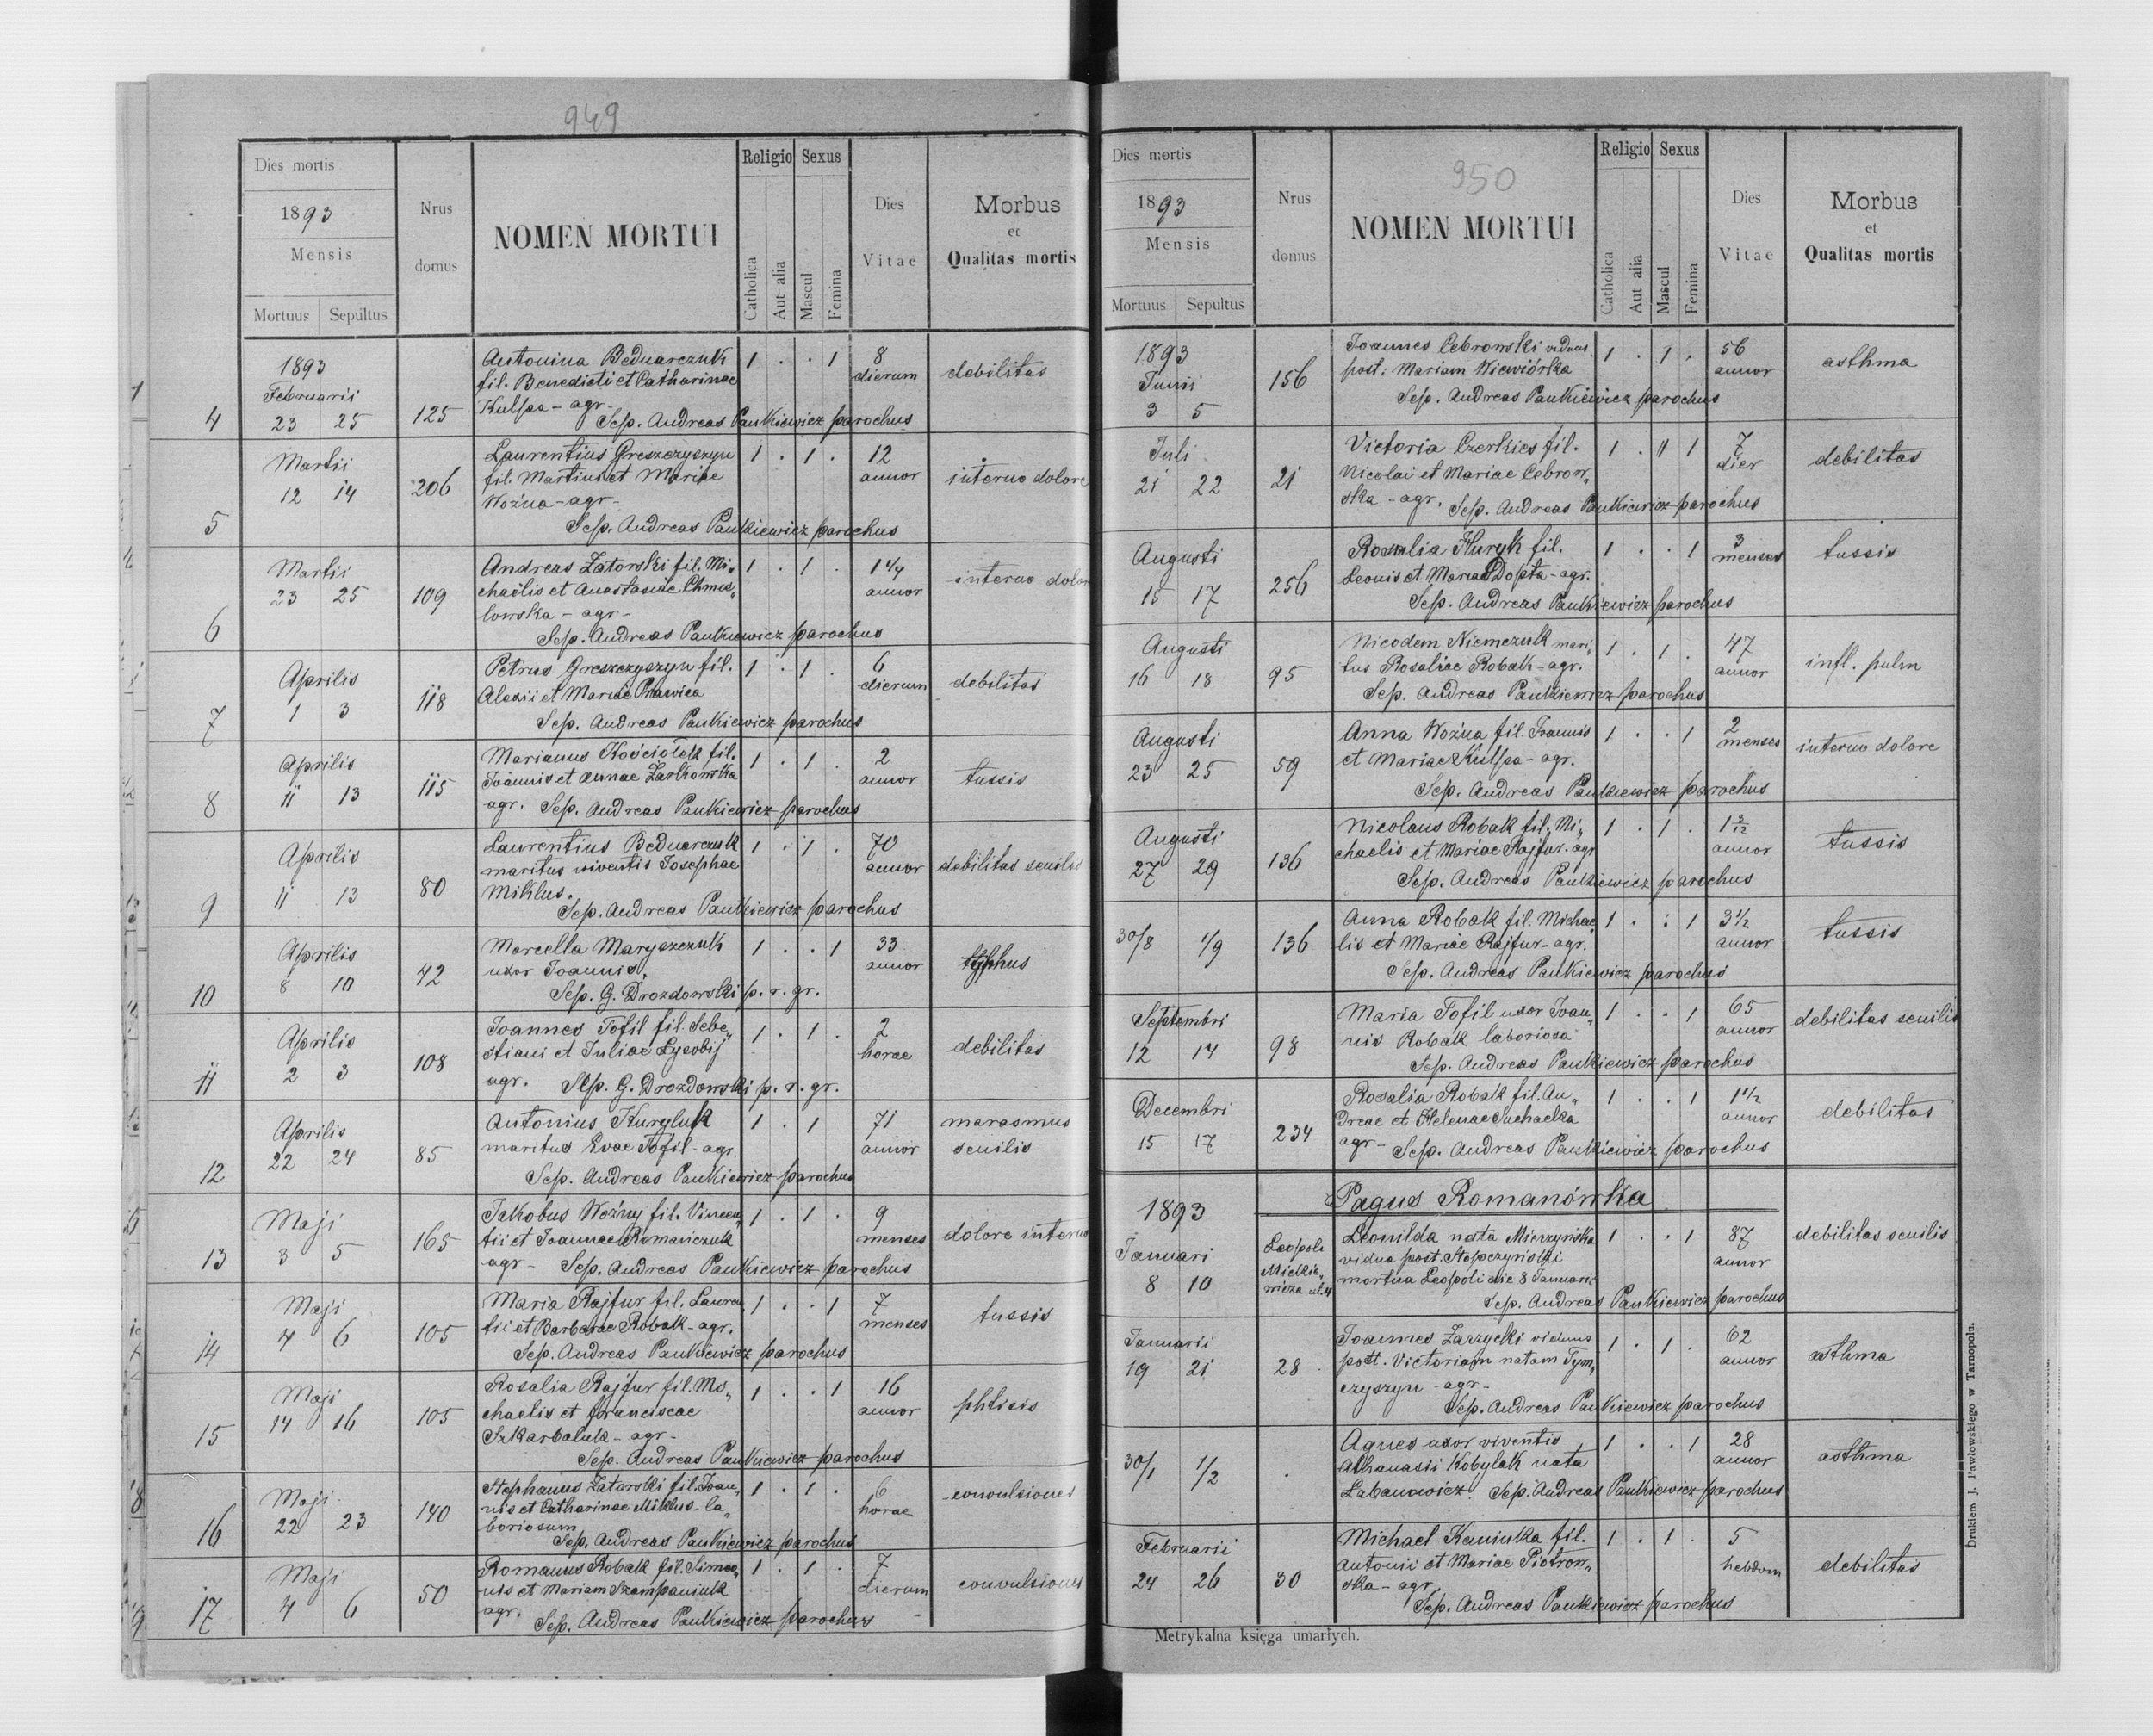 949
Dies mortis
1893
Mensis
Mortuus Sepultus
Nrus domus
NOMEN MORTUI
Religio
Catholica
Aut alia
Sexus
Mascul
Femina
Dies Vitae
Morbus
et
Qualitas mortis
1
1893
Februarii
4 23 25 125
Antonina Bednarczuk 1 . . 1 8
fil. Benedicti et Catharinae dierum debilitas
Kulpa - agr -
Sep. Andreas Pankiewicz parochus
Martii
5 12 14 206
Laurentius Greszczyszyn 1 . 1 . 12
fil. Martini et Mariae annor interno dolore
Woźna - agr -
Sep. Andreas Pankiewicz parochus
Martii
6 23 25 109
Andreas Zatorski fil. Mi„ 1 . 1 . 1 1/4
chaëlis et Anastasiae Chmie„ annor interno dolore
lowska - agr -
Sep. Andreas Pankiewicz parochus
Aprilis
7 1 3 118
Petrus Greszczyszyn fil. 1 . 1 . 6
Alexii et Mariae Prawica dierum debilitas
Sep. Andreas Pankiewicz parochus
Aprilis
8 11 13 115
Marianus Kościołek fil. 1 . 1 . 2
Joannis et Annae Żarkowska annor tussis
agr. Sep. Andreas Pankiewicz parochus
Aprilis
9 11 13 80
Laurentius Bednarczuk 1 . 1 . 70
maritus viventis Josephae annor debilitas senilis
Miklus.
Sep. Andreas Pankiewicz parochus
Aprilis
10 8 10 42
Marcella Maryszczuk 1 . . 1 33
uxor Joannis. annor typhus
Sep. G. Drozdowski p. r. gr.
Aprilis
11 2 3 108
Joannes Tofil fil. Seba„ 1 . 1 . 2
stiani et Juliae Łysobij horae debilitas
agr. Sep. G. Drozdowski p. r. gr.
Aprilis
12 22 24 85
Antonius Kuryluk 1 . 1 71 marasmus
maritus Evae Tofil - agr. annor senilis
Sep. Andreas Pankiewicz parochus
Maji
13 3 5 165
Jakobus Woźny fil. Vincen„ 1 . 1 . 9
tii et Joannae Romańczuk menses dolore interno
agr - Sep. Andreas Pankiewicz parochus
Maji
14 4 6 105
Maria Rajfur fil. Lauren„ 1 . . 1 7
tii et Barbarae Robak - agr. menses tussis
Sep. Andreas Pankiewicz parochus
Maji
15 14 16 105
Rosalia Rajfur fil. Mi„ 1 . . 1 16
chaelis et Franciscae annor phtisis
Szkarbaluk - agr -
Sep. Andreas Pankiewicz parochus
Maji
16 22 23 140
Stephanus Zatorski fil. Joan„ 1 . 1 . 6 convulsiones
nis et Catharinae Miklus - la„ horae
boriosum
Sep. Andreas Pankiewicz parochus
Maji
17 4 6 50
Romanus Robak fil. Simeo„ 1 . 1 . 7
nis et Mariam Szampaniuk dierum convulsiones
agr. Sep. Andreas Pankiewicz parochus
950
Dies mortis
1893
Mensis
Mortuus Sepultus
Nrus domus
NOMEN MORTUI
Religio
Catholica
Aut alia
Sexus
Mascul
Femina
Dies Vitae
Morbus
et
Qualitas mortis
1893
Junii
3 5 156
Joannes Cebrowski viduus 1 . 1 . 56
post. Mariam Wiewiórska annor asthma
Sep. Andreas Pankiewicz parochus
Juli
21 22 21
Victoria Czerkies fil. 1 . 1 7
Nicolai et Mariae Cebrow„ dier debilitas
ska - agr. Sep. Andreas Pankiewicz parochus
Augusti
15 17 256
Rosalia Huryk fil. 1 . . 1 3
Leonis et Mariae Dopta - agr. menses tussis
Sep. Andreas Pankiewicz parochus
Augusti
16 18 95
Nicodem Niemczuk mari„ 1 . 1 . 47
tus Rosaliae Robak - agr. annor infl. pulm
Sep. Andreas Pankiewicz parochus
Augusti
23 25 59
Anna Woźna fil. Joannis 1 . . 1 2
et Mariae Kulpa - agr. menses interno dolore
Sep. Andreas Pankiewicz parochus
Augusti
27 29 136
Nicolaus Robak fil. Mi„ 1 . 1 . 1 3/12
chaelis et Mariae Rajfur - agr annor tussis
Sep. Andreas Pankiewicz parochus
30/8 1/9 136
Anna Robak fil. Michae„ 1 . . 1 3 1/2
lis et Mariae Rajfur - agr. annor tussis
Sep. Andreas Pankiewicz parochus
Septembri
12 14 98
Maria Tofil uxor Joan„ 1 . . 1 65
nis Robak laboriosa annor debilitas senilis
Sep. Andreas Pankiewicz parochus
Decembri
15 17 234
Rosalia Robak fil. An„ 1 . . 1 1 1/2
dreae et Helenae Suchacka annor debilitas
agr - Sep. Andreas Pankiewicz parochus
1893 Pagus Romanówka
Januari
8 10
Leopoli
Mickie„
wicza ul. 4
Leonilda nata Mierzyńska 1 . . 1 87 debilitas senilis
vidua post. Stopczyński annor
mortua Leopoli die 8 Januarii
Sep. Andreas Pankiewicz parochus
Januarii
19 21 28
Joannes Zarzycki viduus 1 . 1 . 62
post. Victoriam natam Tym„ annor asthma
czyszyn - agr -
Sep. Andreas Pankiewicz parochus
30/1 1/2 .
Agnes uxor viventis 1 . . 1 28
Athanasii Kobylak nata annor asthma
Łabanowicz. Sep. Andreas Pankiewicz parochus
Februarii
24 26 30
Michael Kaniuka fil. 1 . 1 . 5
Antonii et Mariae Piotrow„ hebdom debilitas
ska - agr.
Sep. Andreas Pankiewicz parochus
Metrykalna księga umarłych.
Drukiem J. Pawłowskiego w Tarnopolu.